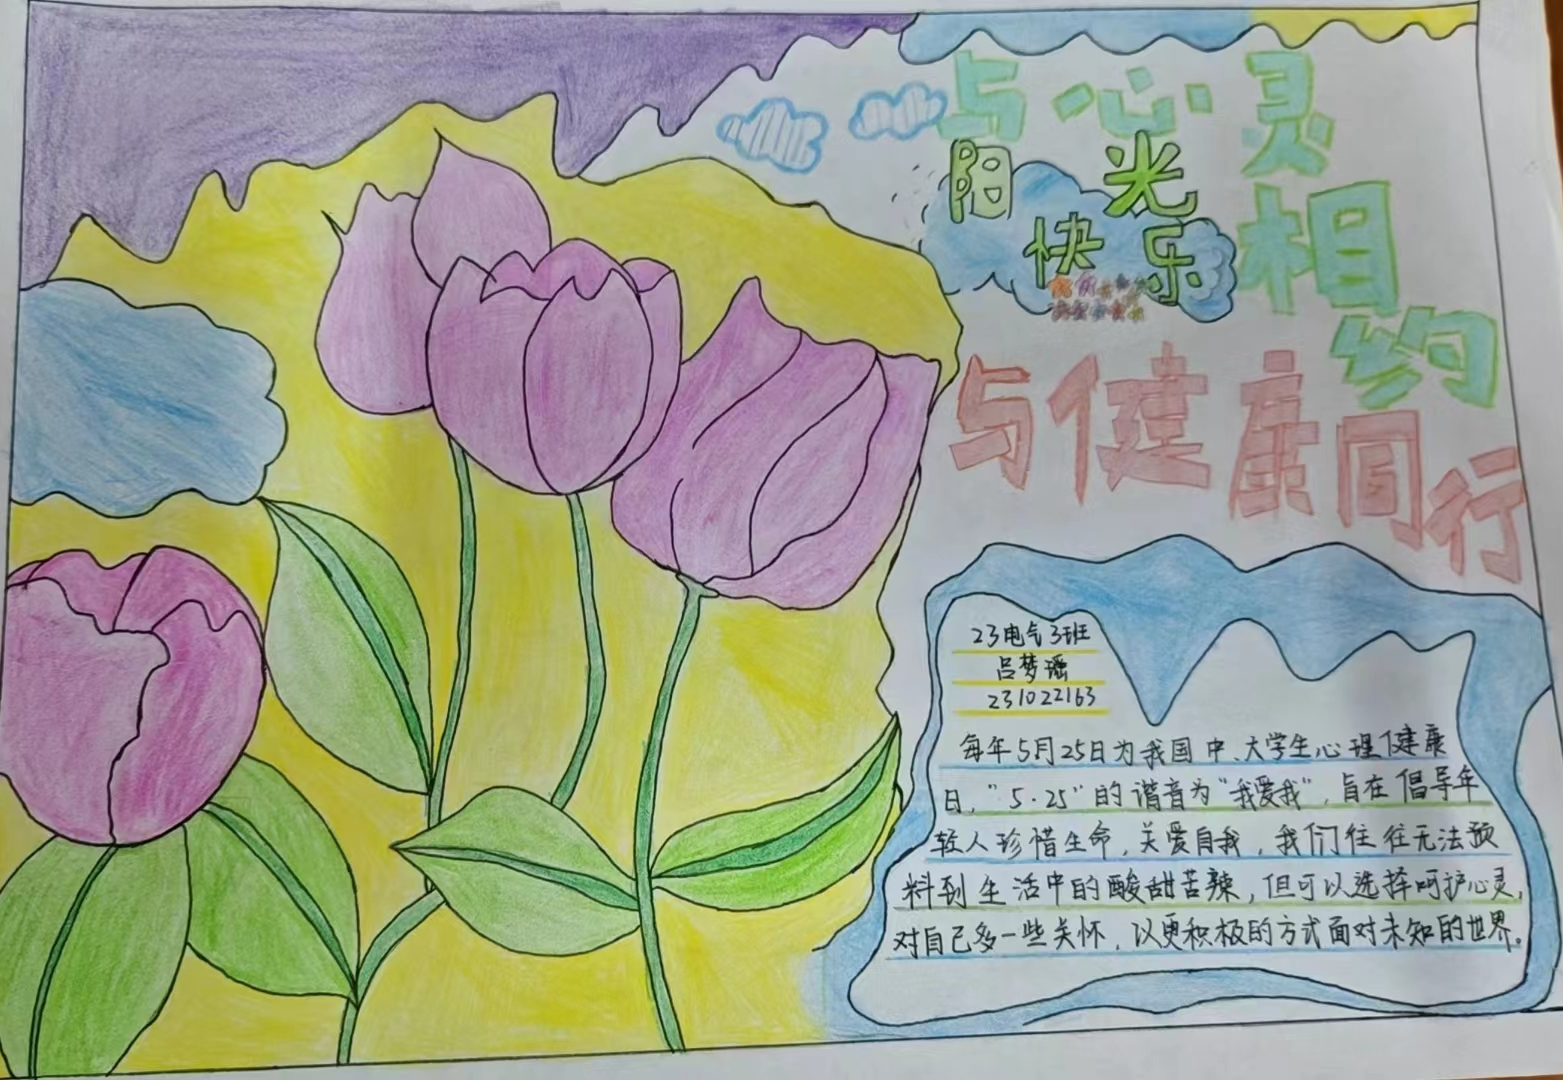 与心灵
相
约
阳光
快乐
与健康同行
23电气3班
吕梦瑶
231022163
每年5月25日为我国中、大学生心理健康
日,“5·25”的谐音为“我爱我”,旨在倡导年
轻人珍惜生命,关爱自我,我们往往无法预
料到生活中的酸甜苦辣,但可以选择呵护心灵,
对自己多一些关怀,以更积极的方式面对未知的世界。